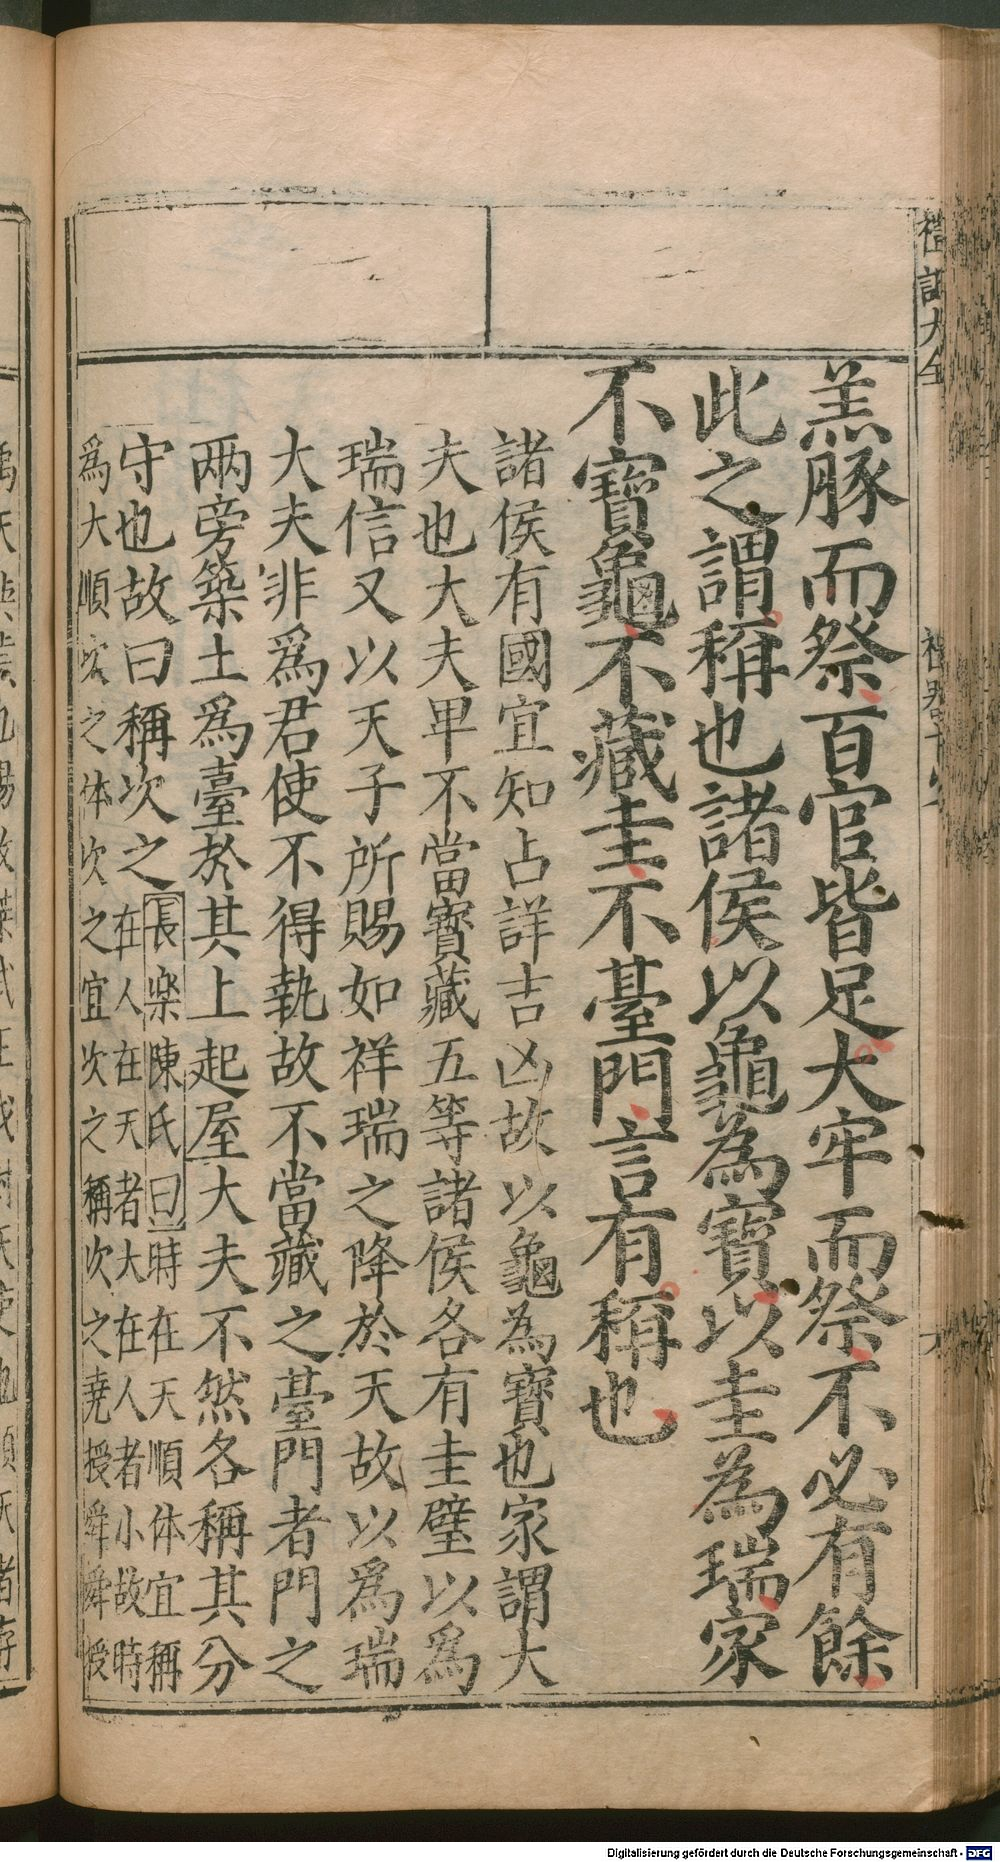 羔豚而祭百官皆足大牢而祭不必有餘
此之謂稱也諸侯以龜為寶以圭為瑞家
不寶龜不藏圭不臺門言有稱也
諸侯有國宜知占詳吉凶故以龜為寶也家謂大
夫也大夫卑不當寳藏五等諸侯各有圭璧以爲
瑞信又以天子所賜如祥瑞之降於天故以爲瑞
大夫非爲君使不得執故不當藏之臺門者門之
兩旁築土爲臺於其上起屋大夫不然各稱其分
守也故曰稱次之
長楽陳氏曰時在天順体宜稱
在人在天者大在人者小故時
爲大順次之体次之宜次之稱次之堯授舜舜授
禮記大全
Digitalisierung gefördert durch die Deutsche Forschungsgemeinschaft - DFG